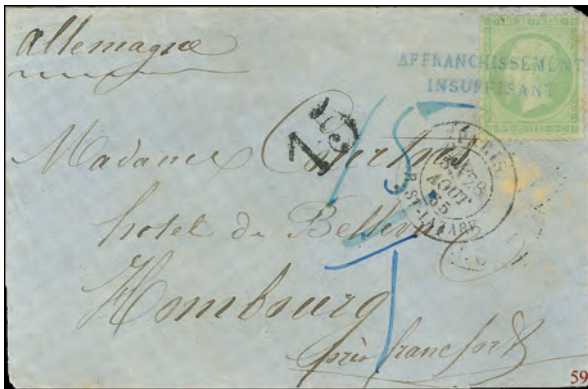 Allemagne
AFFRANCHISSEMENT
INSUFFISANT
15
Madame
PARIS
28
AOUT
65
R. ST-LAZARE
hotel de Bellevue
Hombourg
près francfort
59